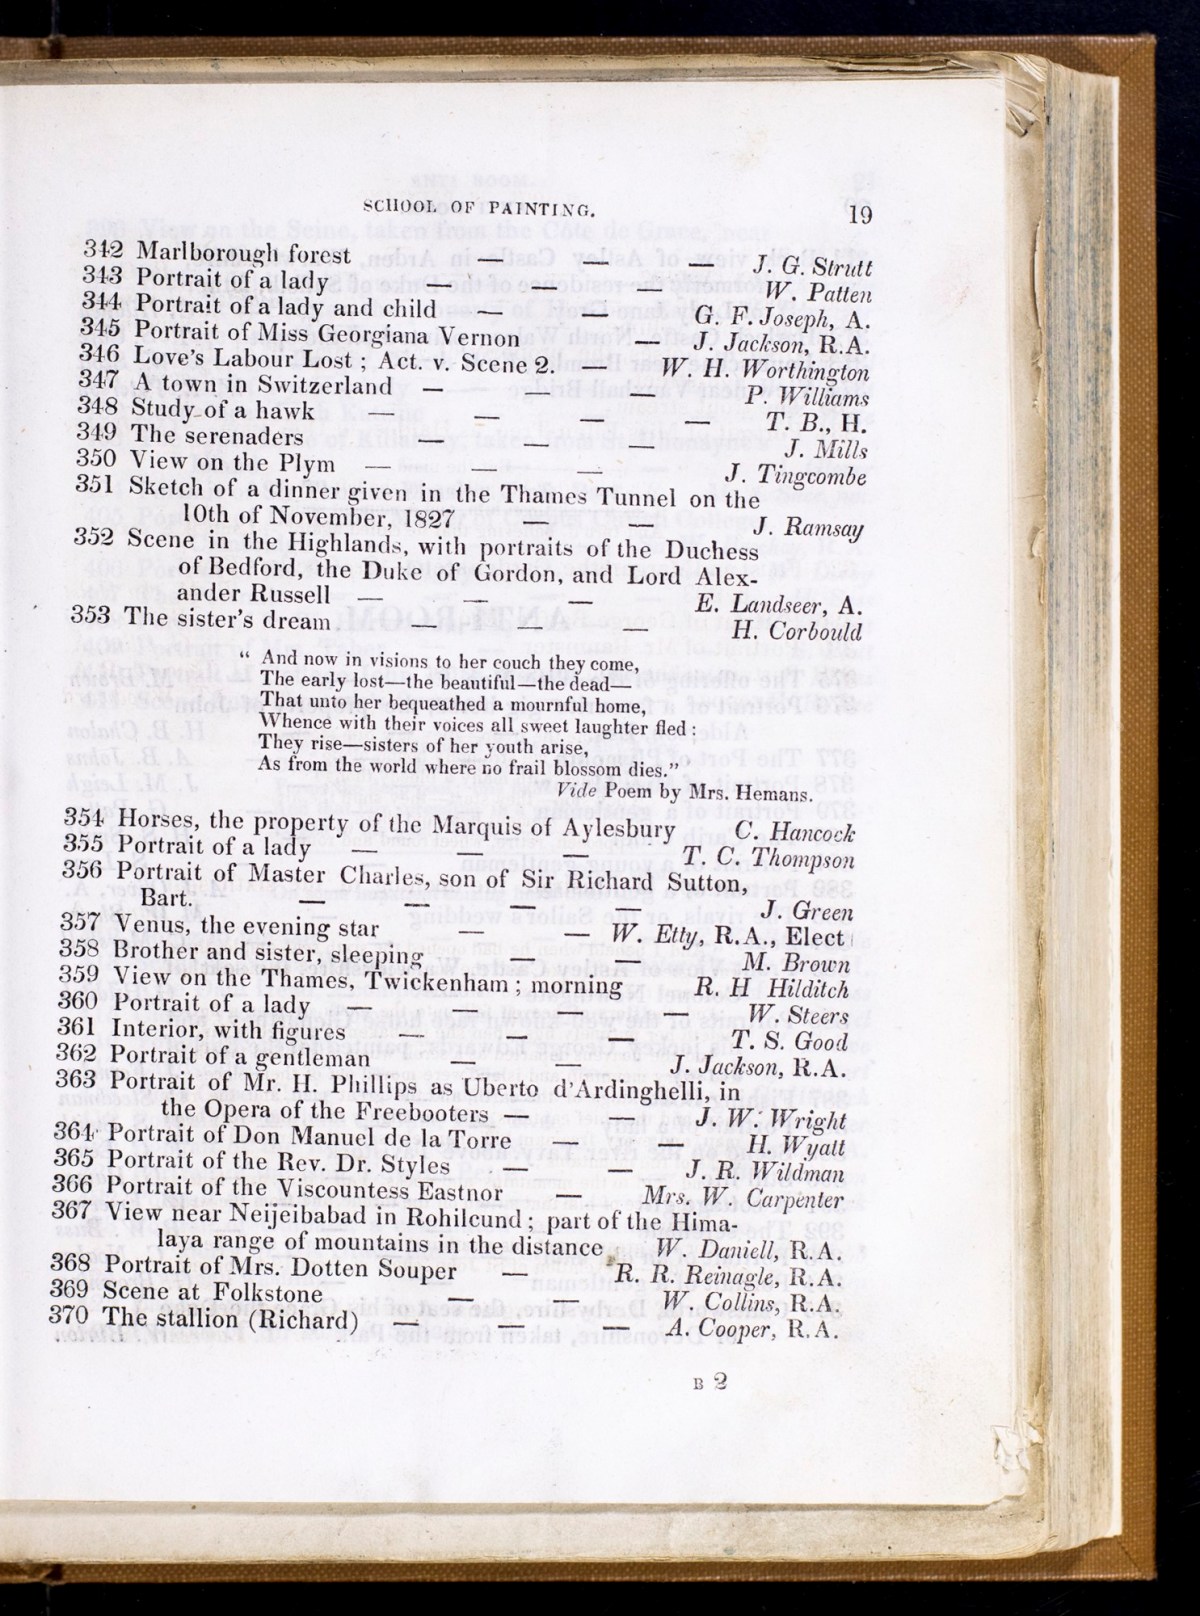 SCHOOL OF PAINTING. 19
342 Marlborough forest — — — J. G. Strutt
343 Portrait of a lady — — — W. Patten
344 Portrait of a lady and child — — — G. F. Joseph, A.
345 Portrait of Miss Georgiana Vernon — J. Jackson, R.A.
346 Love's Labour Lost ; Act. v. Scene 2. — W. H. Worthington
347 A town in Switzerland — — — P. Williams
348 Study of a hawk — — — — T. B., H.
349 The serenaders — — — J. Mills
350 View on the Plym — — — J. Tingcombe
351 Sketch of a dinner given in the Thames Tunnel on the
10th of November, 1827 — — J. Ramsay
352 Scene in the Highlands, with portraits of the Duchess
of Bedford, the Duke of Gordon, and Lord Alex-
ander Russell — — — E. Landseer, A.
353 The sister's dream — — — H. Corbould
“ And now in visions to her couch they come,
The early lost—the beautiful—the dead—
That unto her bequeathed a mournful home,
Whence with their voices all sweet laughter fled :
They rise—sisters of her youth arise,
As from the world where no frail blossom dies.”
Vide Poem by Mrs. Hemans.
354 Horses, the property of the Marquis of Aylesbury C. Hancock
355 Portrait of a lady — — — T. C. Thompson
356 Portrait of Master Charles, son of Sir Richard Sutton,
Bart. — — — — J. Green
357 Venus, the evening star — — W. Etty, R.A., Elect
358 Brother and sister, sleeping — — M. Brown
359 View on the Thames, Twickenham ; morning R. H Hilditch
360 Portrait of a lady — — — — W. Steers
361 Interior, with figures — — — T. S. Good
362 Portrait of a gentleman — — J. Jackson, R.A.
363 Portrait of Mr. H. Phillips as Uberto d'Ardinghelli, in
the Opera of the Freebooters — — J. W. Wright
364 Portrait of Don Manuel de la Torre — — H. Wyatt
365 Portrait of the Rev. Dr. Styles — — J. R. Wildman
366 Portrait of the Viscountess Eastnor — Mrs. W. Carpenter
367 View near Neijeibabad in Rohilcund ; part of the Hima-
laya range of mountains in the distance W. Daniell, R.A.
368 Portrait of Mrs. Dotten Souper — R. R. Reinagle, R.A.
369 Scene at Folkstone — — W. Collins, R.A.
370 The stallion (Richard) — — — A. Cooper, R.A.
B 2